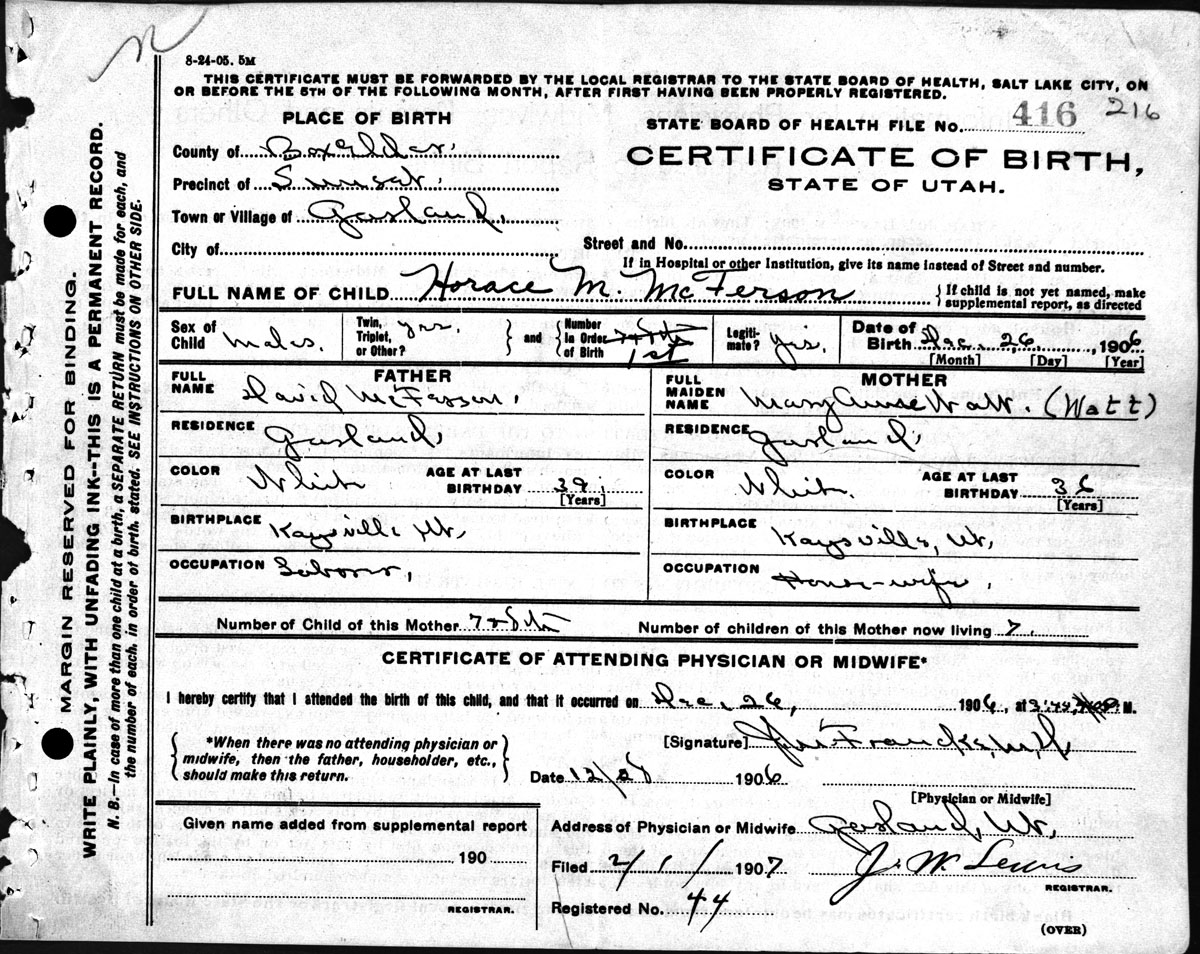 8-24-05. 5M
THIS CERTIFICATE MUST BE FORWARDED BY THE LOCAL REGISTRAR TO THE STATE BOARD OF HEALTH, SALT LAKE CITY, ON
OR BEFORE THE 5TH OF THE FOLLOWING MONTH, AFTER FIRST HAVING BEEN PROPERLY REGISTERED.
PLACE OF BIRTH
STATE BOARD OF HEALTH FILE No. 416 216
County of Box Elder.
CERTIFICATE OF BIRTH,
STATE OF UTAH.
Precinct of Sunset.
Town or Village of Garland,
City of
Street and No.
If in Hospital or other Institution, give its name instead of Street and number.
FULL NAME OF CHILD Horace M. McFerson
{ If child is not yet named, make supplemental report, as directed
Sex of Child Male. Twin, Triplet, or Other? yes. } and { Number In Order of Birth 1st Legitimate? Yes. Date of Birth Dec. 26, 1906
[Month] [Day] [Year]
FATHER
FULL NAME David McFarson.
RESIDENCE Garland,
COLOR White AGE AT LAST BIRTHDAY 39.
[Years]
BIRTHPLACE Kaysville Ut.
OCCUPATION Laborer
MOTHER
FULL MAIDEN NAME Mary Watt. (Watt)
RESIDENCE Garland,
COLOR White. AGE AT LAST BIRTHDAY 36
[Years]
BIRTHPLACE Kaysville, Ut,
OCCUPATION House-wife.
Number of Child of this Mother 7 & 8th
Number of children of this Mother now living 7.
CERTIFICATE OF ATTENDING PHYSICIAN OR MIDWIFE*
I hereby certify that I attended the birth of this child, and that it occurred on Dec. 26, 1906, at M.
{ *When there was no attending physician or midwife, then the father, householder, etc., should make this return. }
[Signature] Francke, M.D.
Date 12/28 1906
[Physician or Midwife]
Given name added from supplemental report
190
REGISTRAR.
Address of Physician or Midwife Garland, Ut.
Filed 2/1/ 1907 J. W. Lewis
REGISTRAR.
Registered No. 44
(OVER)
MARGIN RESERVED FOR BINDING.
WRITE PLAINLY, WITH UNFADING INK--THIS IS A PERMANENT RECORD.
N. B.—In case of more than one child at a birth, a SEPARATE RETURN must be made for each, and
the number of each, in order of birth, stated. SEE INSTRUCTIONS ON OTHER SIDE.